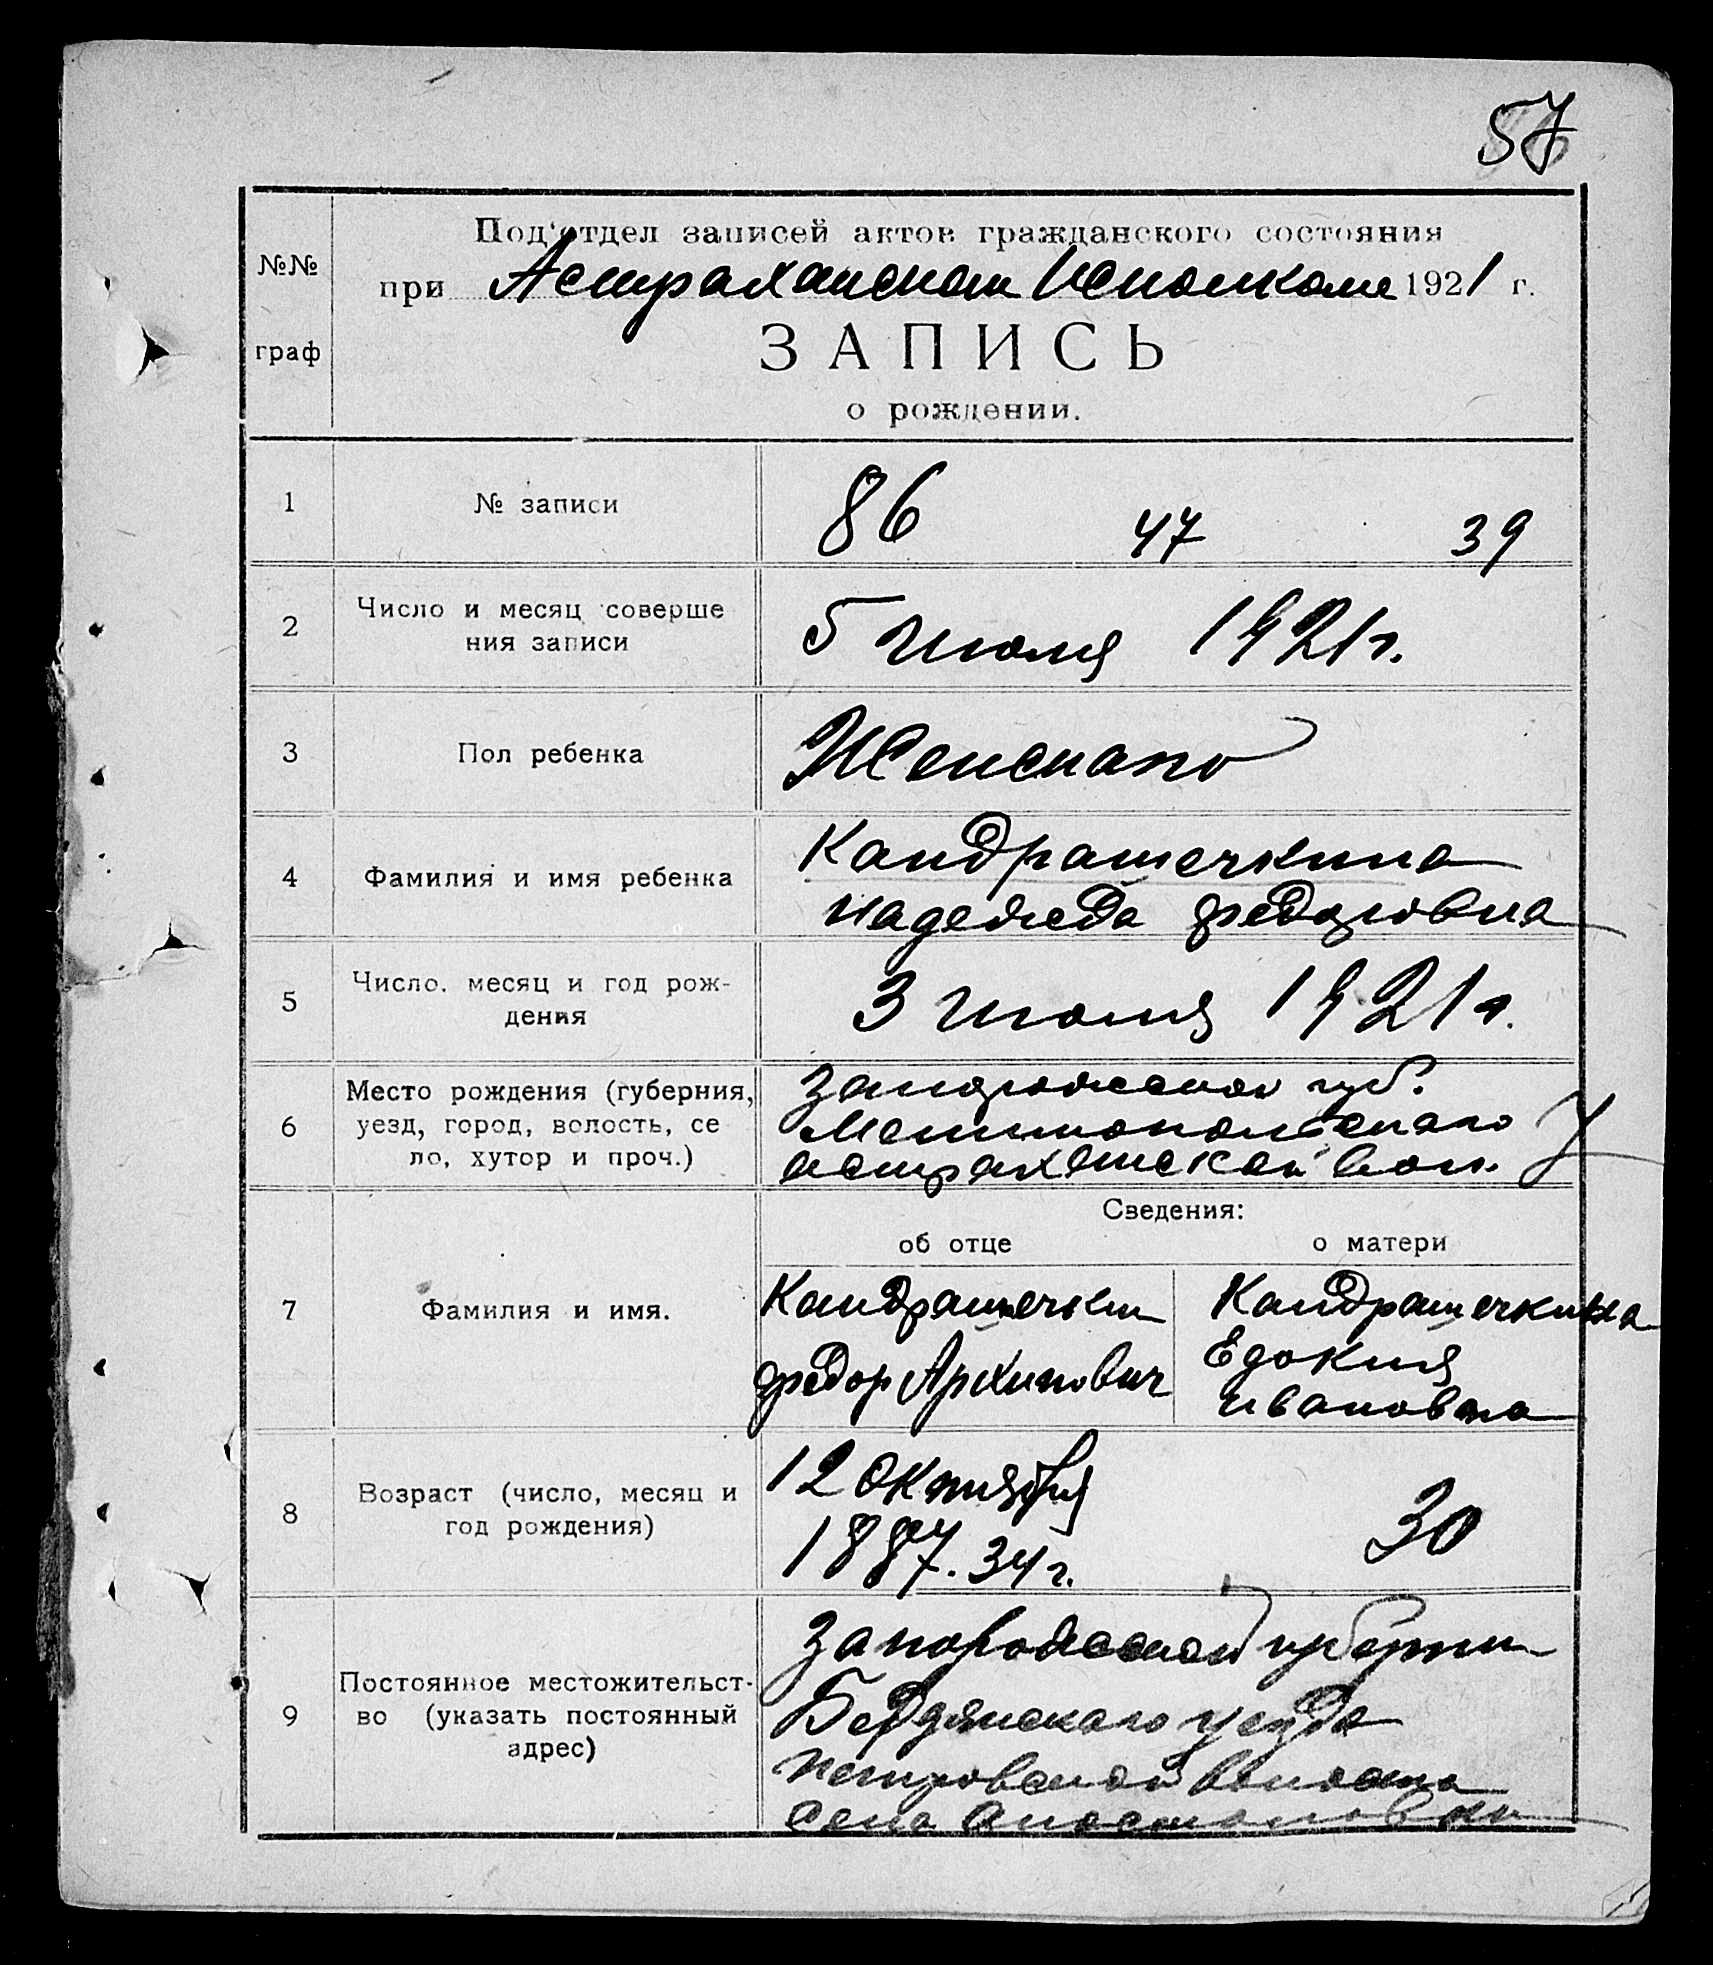 57
Под'отдел записей актов гражданского состояния
№№
при Астраханском Исполкоме 1921 г.
граф
ЗАПИСЬ
о рождении.
1
№ записи
86 47 39
2
Число и месяц соверше
ния записи
5 Июля 1921 г.
3
Пол ребенка
Женскаго
4
Фамилия и имя ребенка
Кандрашечкина
надежда федоровна
5
Число, месяц и год рож-
дения
3 Июля 1921 г.
6
Место рождения (губерния,
уезд, город, волость, се
ло, хутор и проч.)
Запорожской губ.
Мелитопольскаго У
астраханской вол.
Сведения:
об отце
о матери
7
Фамилия и имя.
Кандрашечкин
федор Архипович
Кандрашечкина
Едокия
ивановна
8
Возраст (число, месяц и
год рождения)
12 Октября
1887. 34 г.
30
9
Постоянное местожительст-
во (указать постоянный
адрес)
Запорожской губернии
Бердянскаго уезда
Петровской Волости
Села Апостоловки